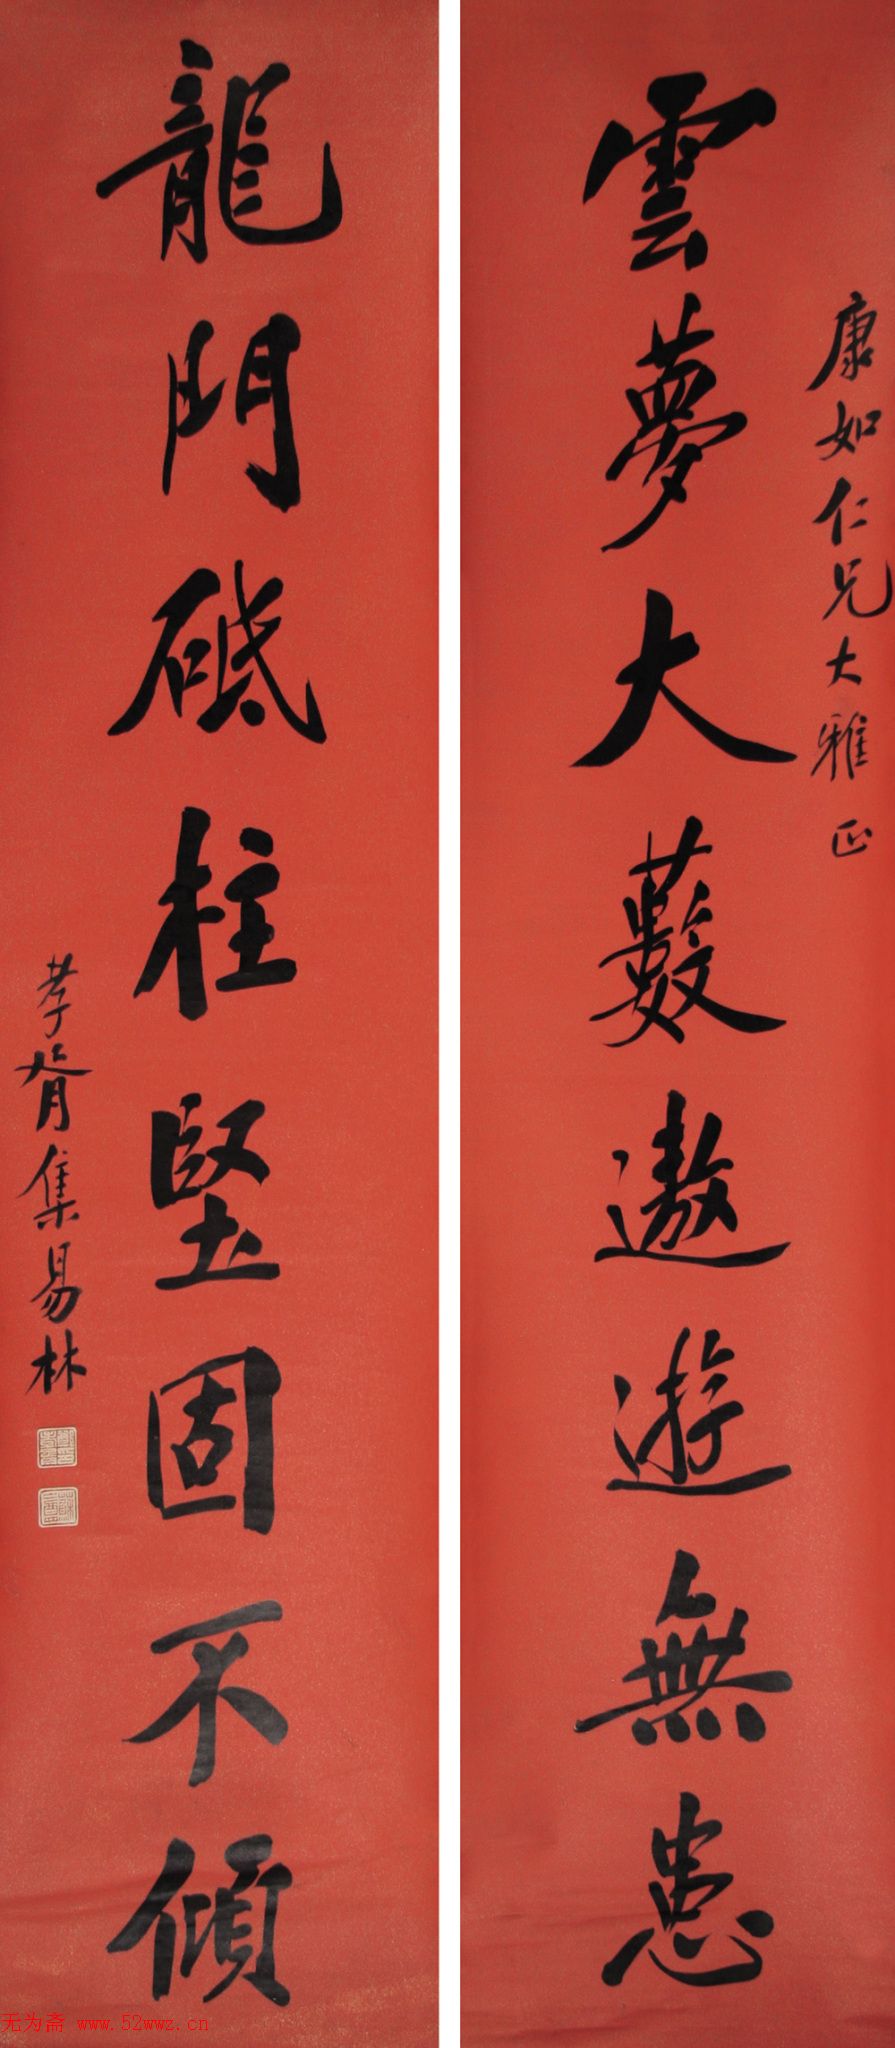 康如仁兄大雅正
雲夢大藪遨遊無患
龍門砥柱堅固不傾
孝胥集易林
无为斋 www.52wwz.cn